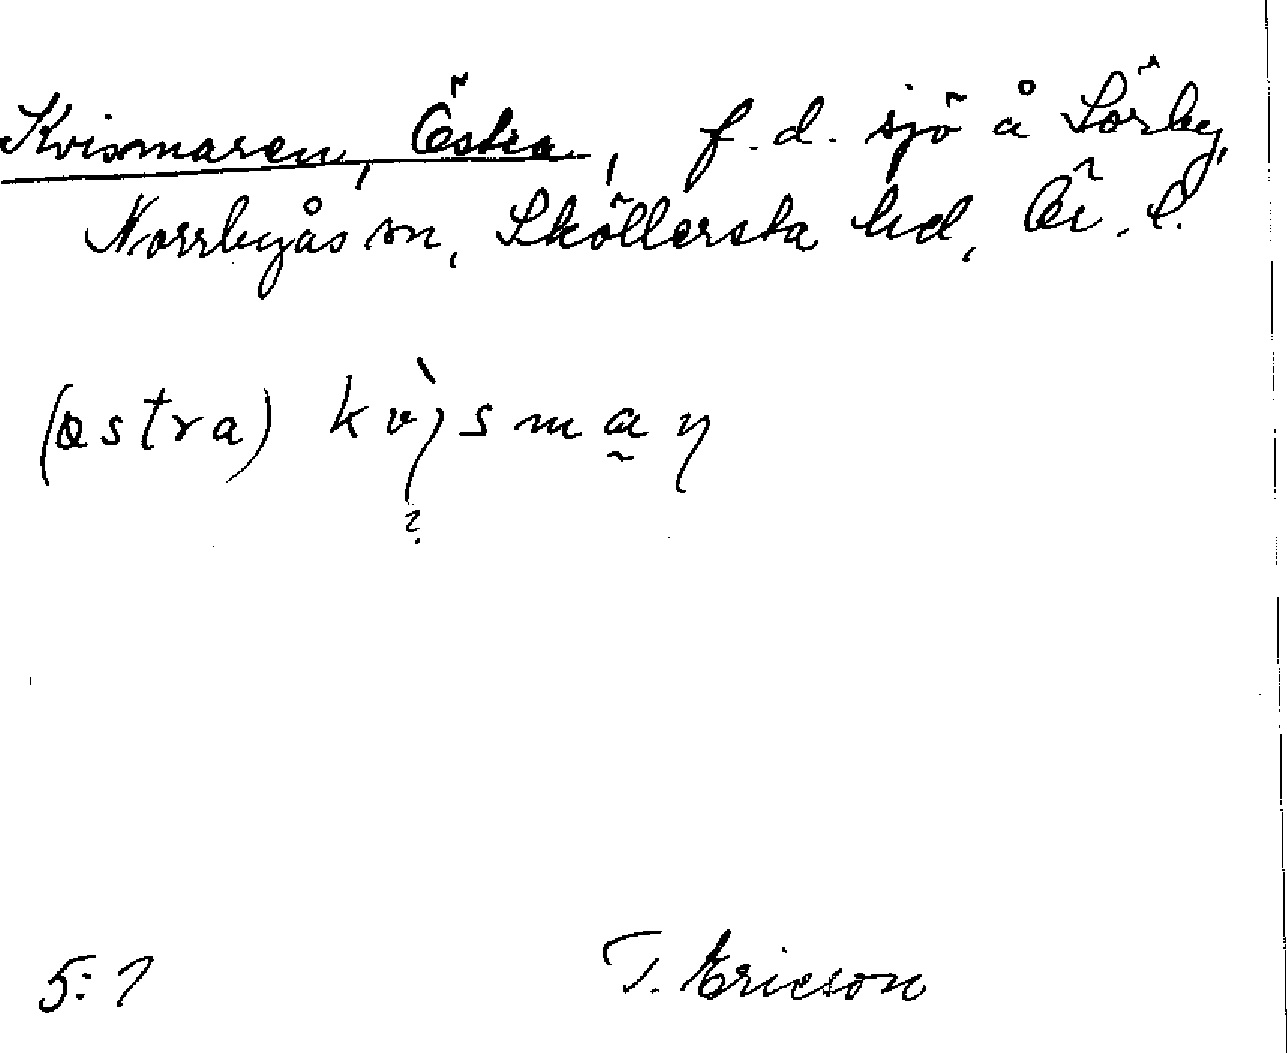 Kvismaren, Östra, f.d. sjö å Sörby,
Norrbyås sn, Sköllersta hd, Ör. l.
(östra)
5:7
T. Ericson